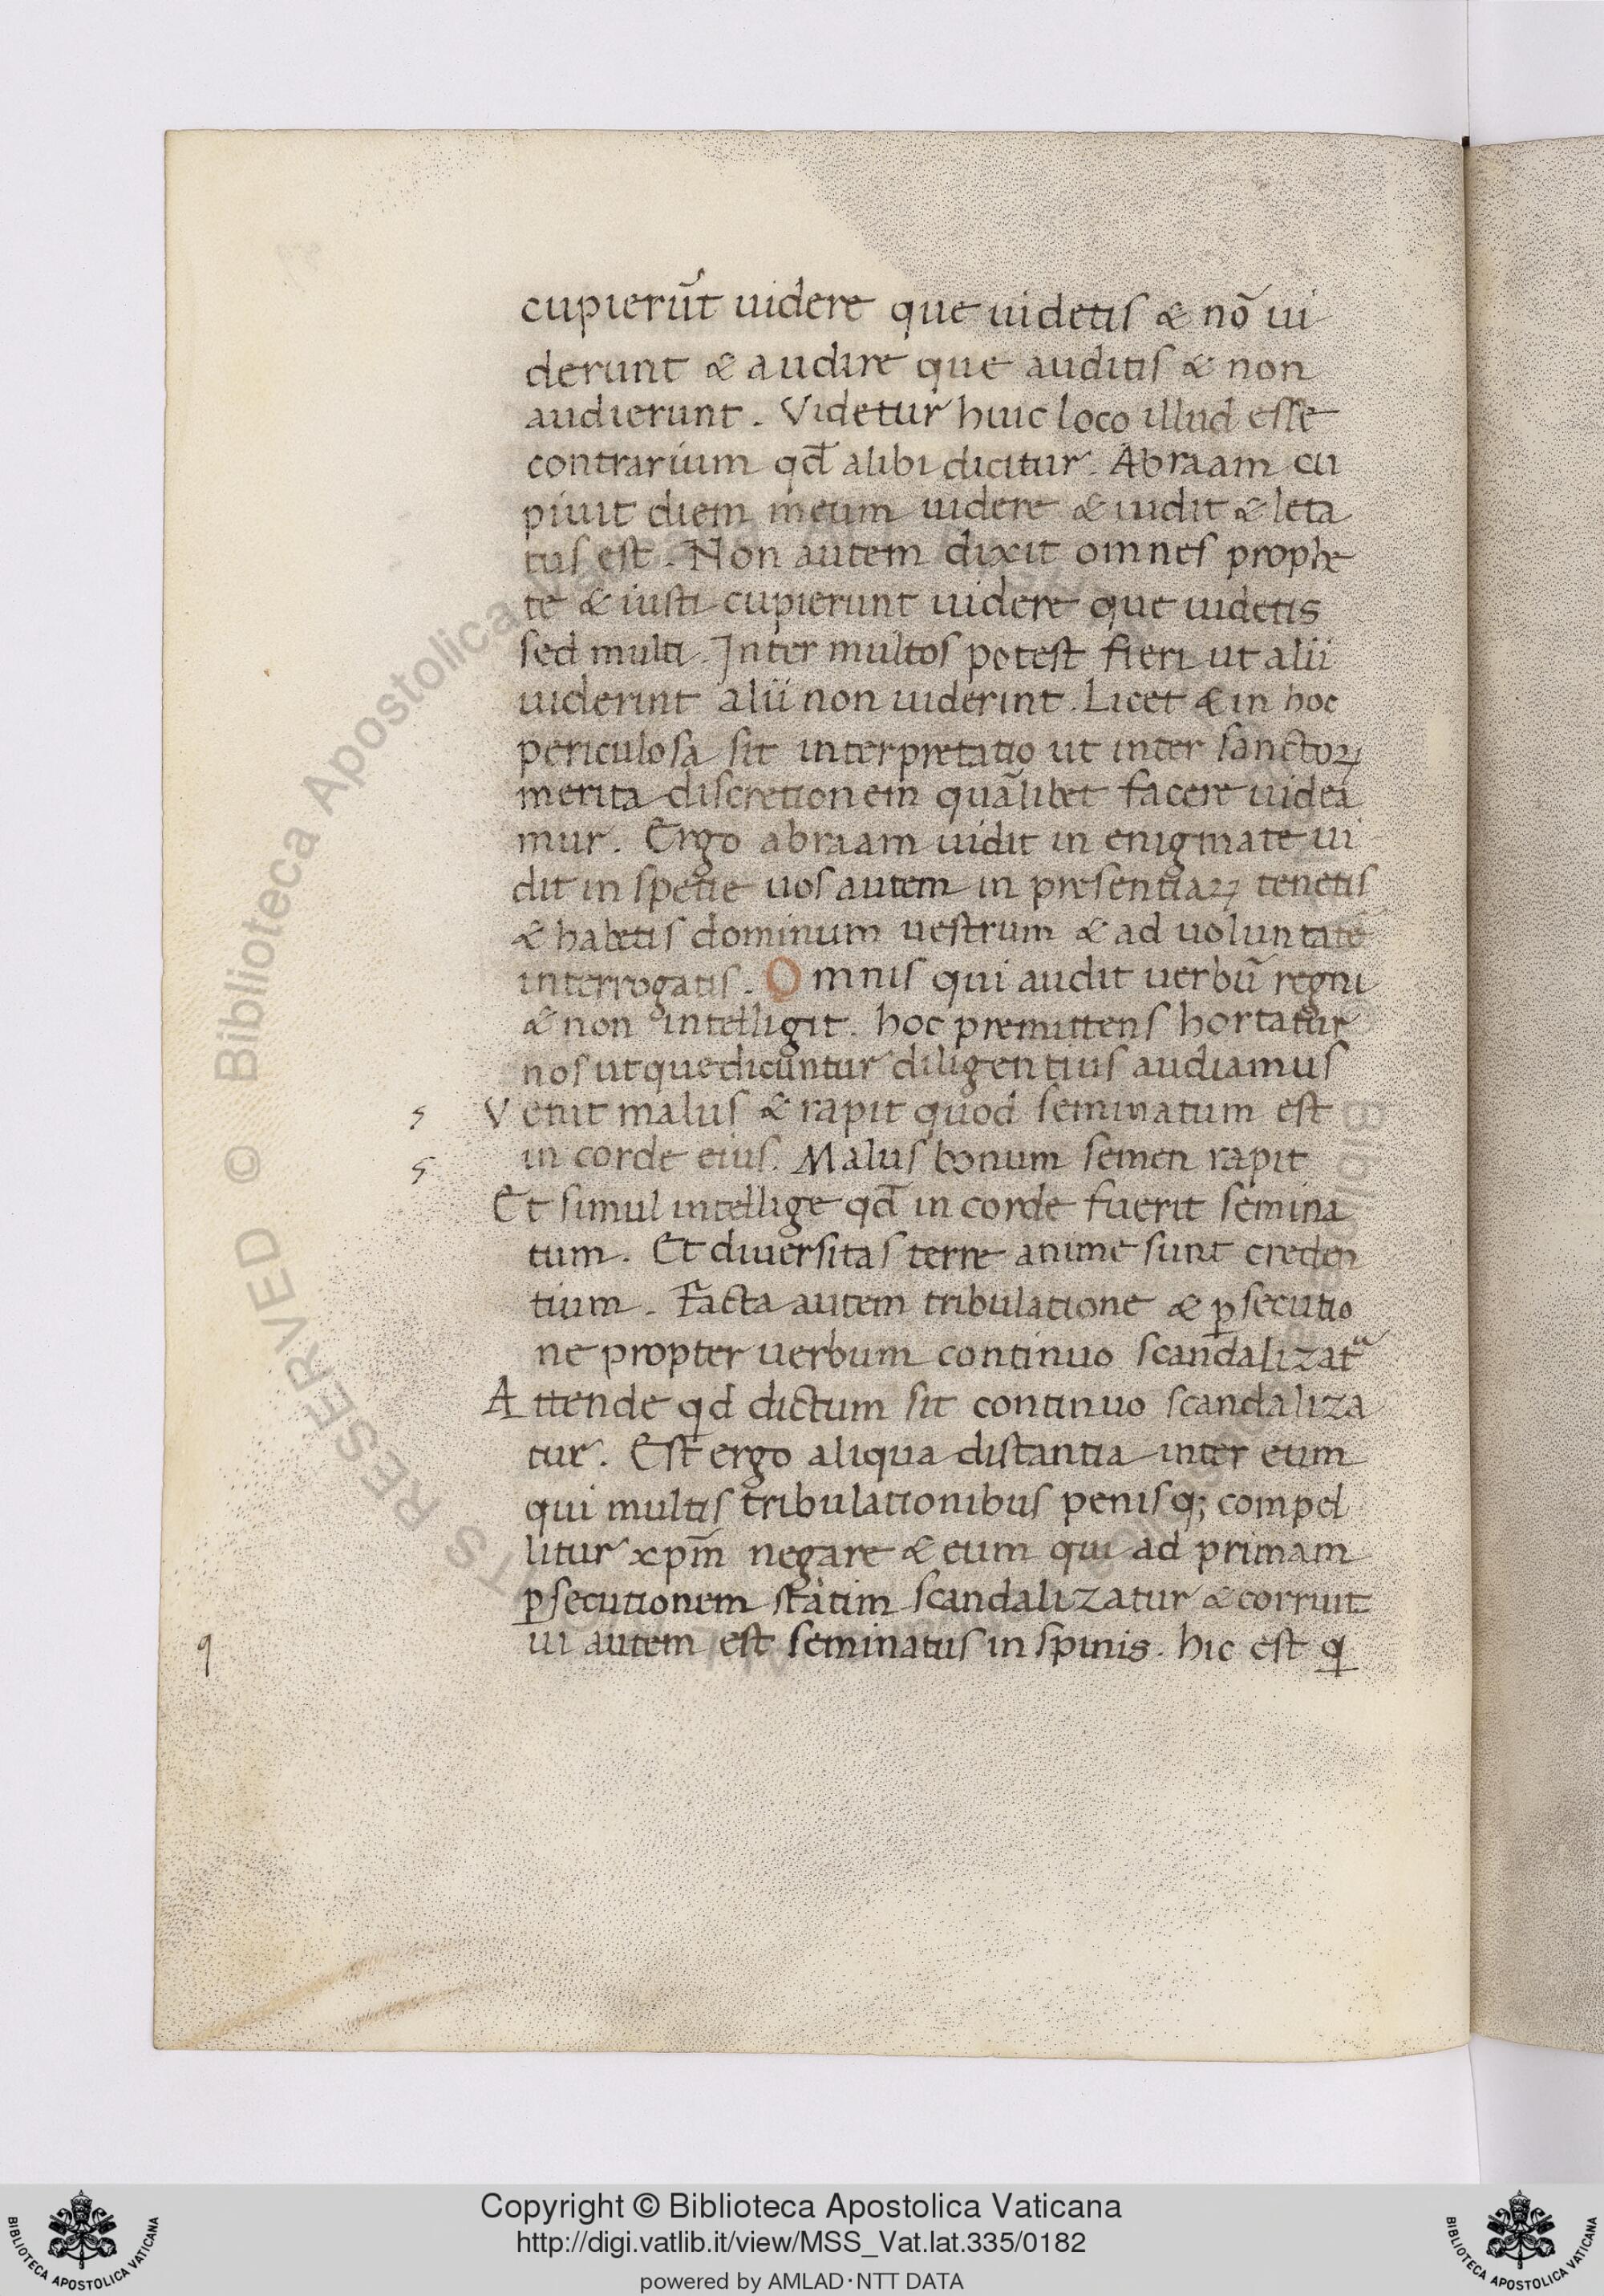 cupierūt uidere que uidetis & nō ui
derunt & audire que auditis & non
audierunt. Videtur huic loco illud esse
contrarium qđ alibi dicitur. Abraam cu
piuit diem meum uidere & uidit & leta
tus est. Non autem dixit omnes prophe
te & iusti cupierunt uidere que uidetis
sed multi. Inter multos potest fieri ut alii
uiderint alii non uiderint. Licet & in hoc
periculosa sit interpretatio ut inter sanctoꝝ
merita discretionem quālibet facere uidea
mur. Ergo abraam uidit in enigmate ui
dit in spetie uos autem in presentiaꝝ tenetis
& habetis dominum uestrum & ad uoluntatē
interrogatis. Omnis qui audit uerbū regni
& non intelligit. hoc premittens hortatur
nos ut que dicuntur diligentius audiamus
Venit malus & rapit quod seminatum est
in corde eius. Malus bonum semen rapit
Et simul intellige qđ in corde fuerit semina
tum. Et diuersitas terre anime sunt creden
tium. Facta autem tribulatione & ꝑsecutio
ne propter uerbum continuo scandalizatᵃ
Attende qd dictum sit continuo scandaliza
tur. Est ergo aliqua distantia inter eum
qui multis tribulationibus penisq; compel
litur xpm̄ negare & eum qui ad primam
ꝑsecutionem statim scandalizatur & corruit
q ui autem est seminatus in spinis. hic est ꝗ
Copyright © Biblioteca Apostolica Vaticana
http://digi.vatlib.it/view/MSS_Vat.lat.335/0182
powered by AMLAD·NTT DATA
BIBLIOTECA APOSTOLICA VATICANA
BIBLIOTECA APOSTOLICA VATICANA